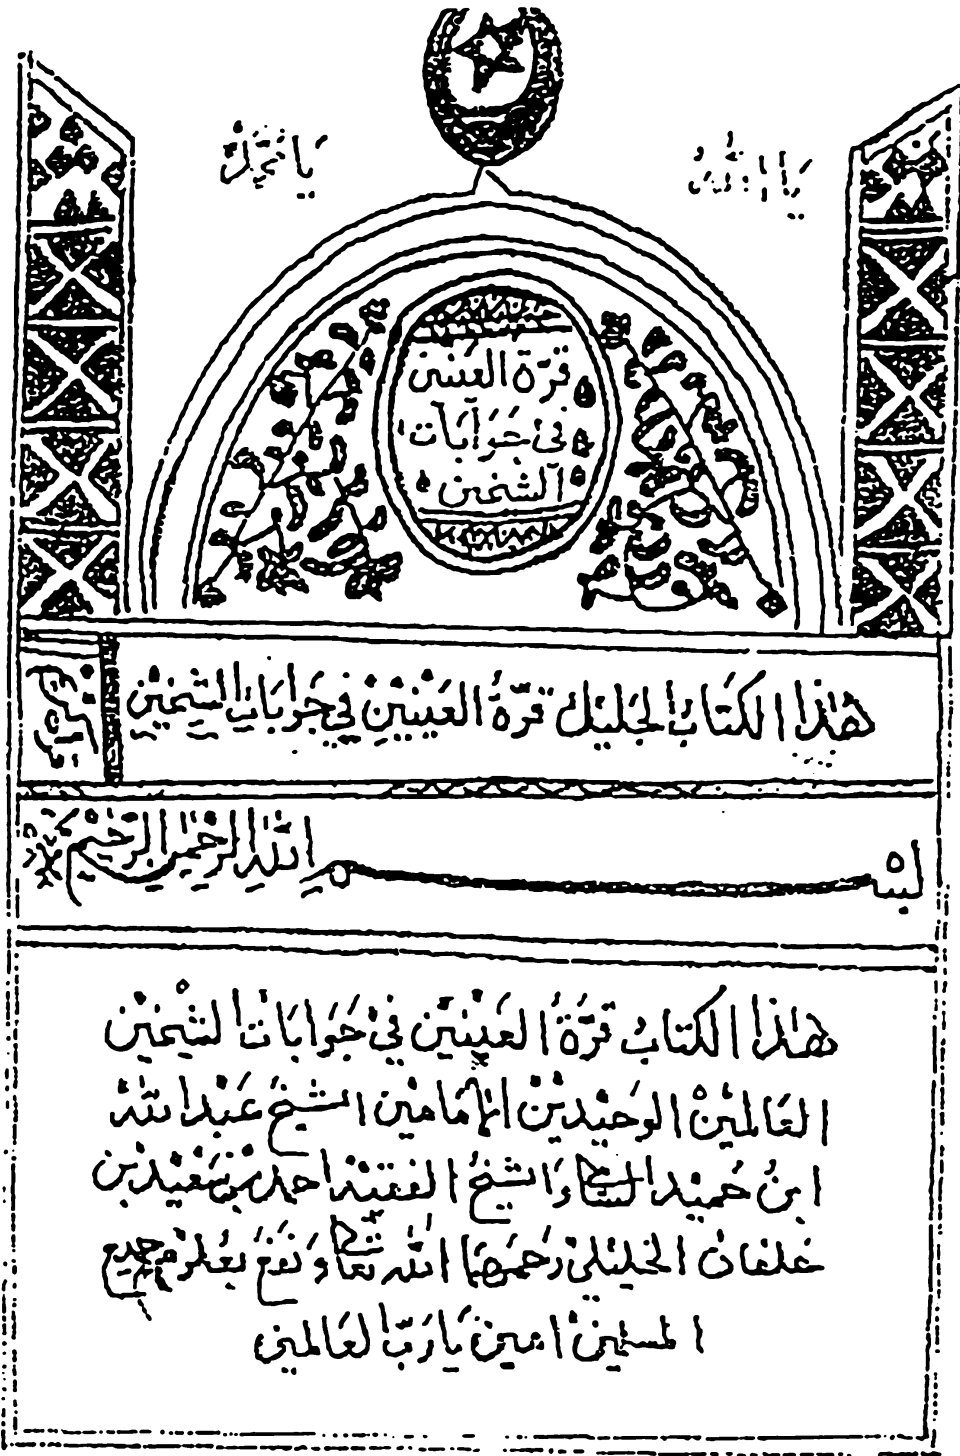 يا الله
يا محمد
قُرَّة العَينَين
في جَوَابَات
الشيخين
هٰذا الكتابُ الجَليلُ قُرَّةُ العَيْنَيْنِ فِي جَوَابَاتِ الشَّيْخَيْنِ
بسم الله الرحمٰن الرحيم
هٰذا الكتابُ قُرَّةُ العَينَيْن فيْ جَوَابَات الشيْخَيْن
العَالمَيْنْ الوَحيْديْنْ الإمَامَيْن الشيْخْ عَبْد الله
ابنْ حُميْد السَّالمي وَالشيْخْ الفقيْه احمد بن سَعيْد بن
خلفان الخليْلي رَحمَهمَا الله تعَالى وَنفعَ بعُلومهم جميع
المسلمين امين يَارَبّ العَالمين